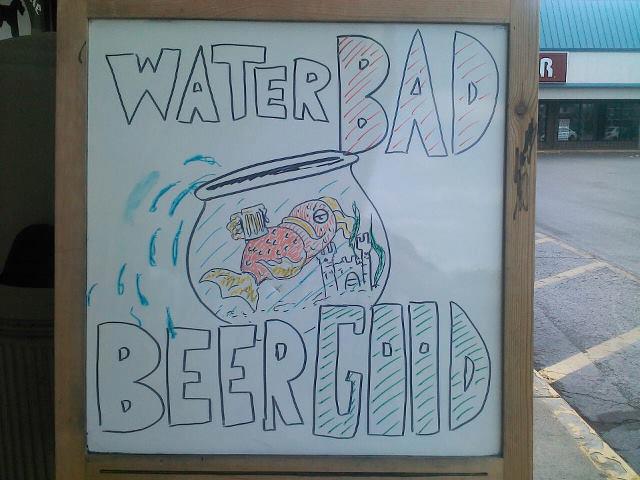 WATER BAD
BEER GOOD
R